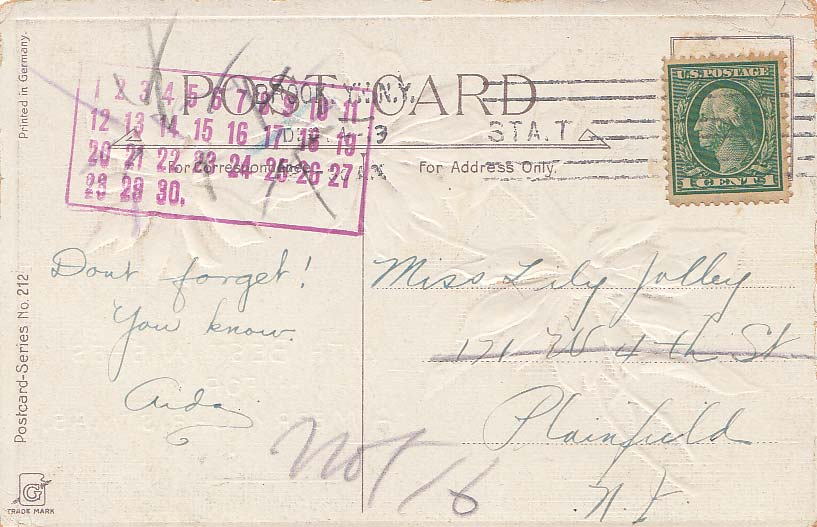 Printed in Germany.
POST CARD
BROOKLYN, N.Y.
STA. T
1 2 3 4 5 6 7 8 9 10 11
12 13 14 15 16 17 18 19
20 21 22 23 24 25 26 27
28 29 30.
For Correspondence
For Address Only.
U.S. POSTAGE
1 CENTS 1
Dont forget!
You know.
Aida
Miss Lily Jolley
171 W 4th St
Plainfield
N.J.
Not 16
Postcard-Series No. 212
G
TRADE MARK